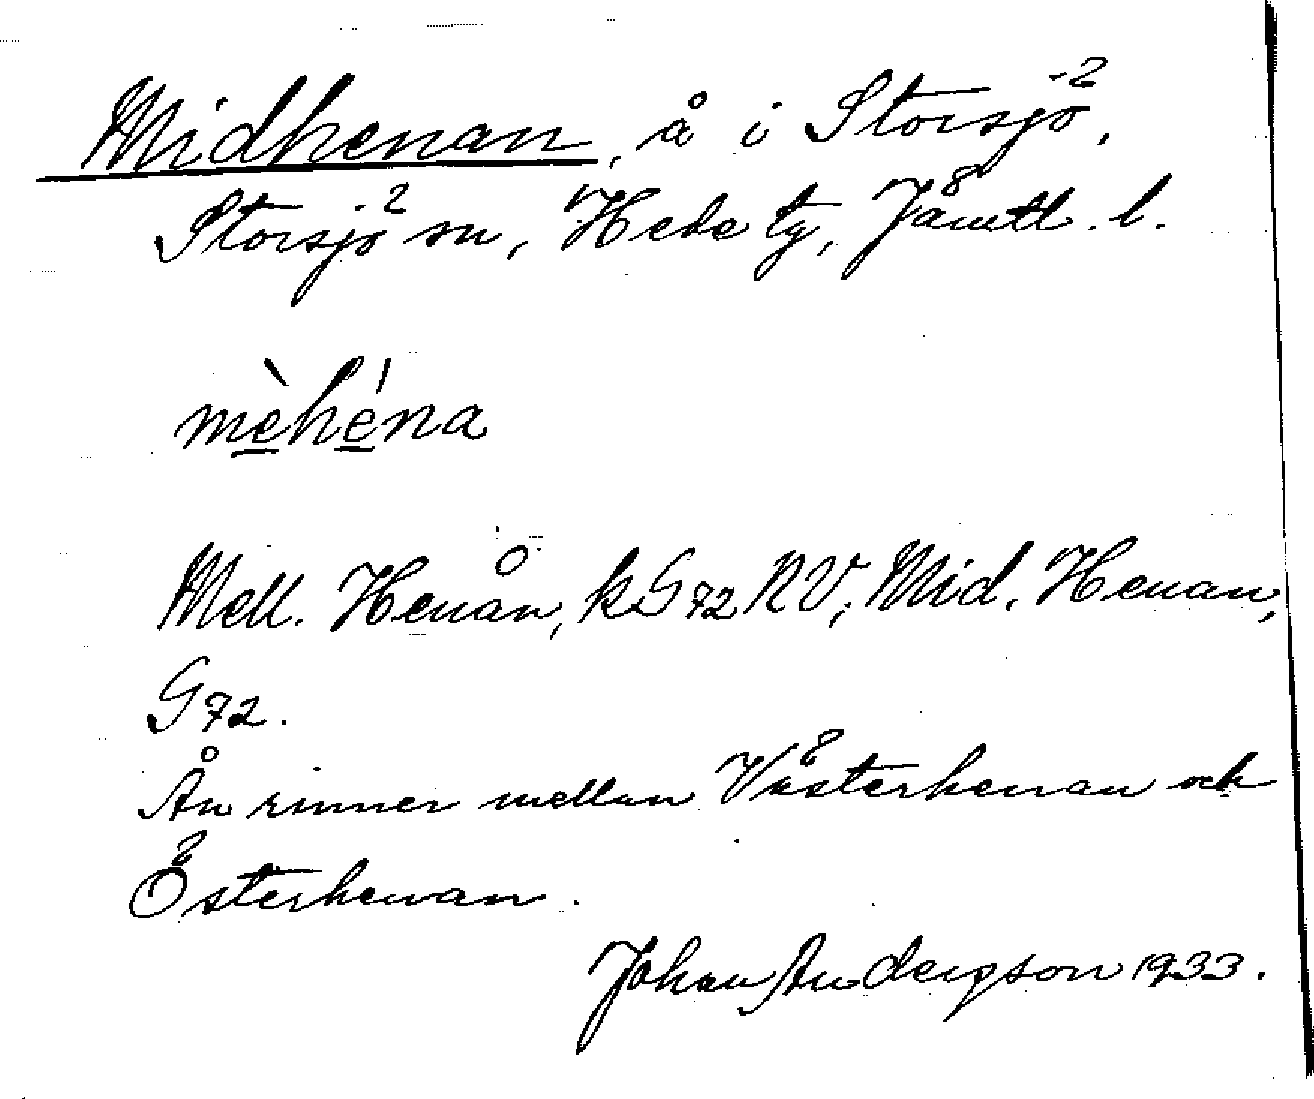 Midhenan, å i Storsjö,
Storsjö sn, Hede tg, Jämtl. l.
mèhéna
Mell. Henån, kG72NV; Mid. Henan,
G72.
Ån rinner mellan Västerhenan och
Österhenan.
Johan Andersson 1933.